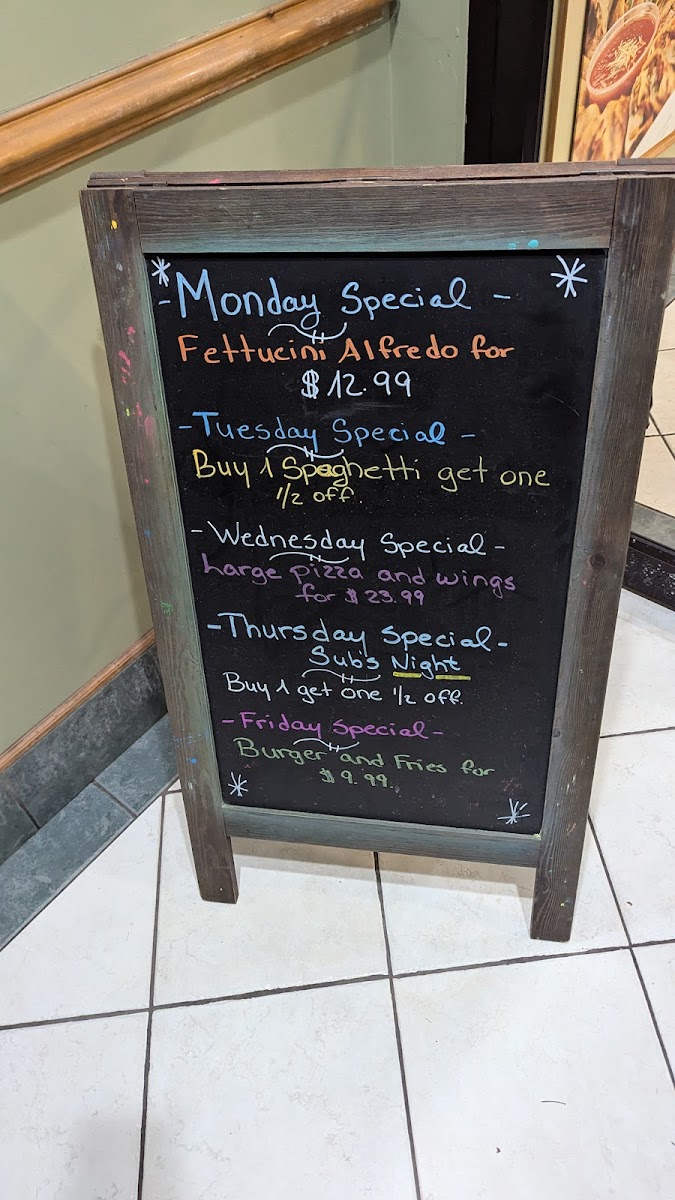 - Monday Special -
Fettucini Alfredo for
$12.99
- Tuesday Special -
Buy 1 Spaghetti get one
1/2 off.
- Wednesday Special -
Large pizza and wings
for $23.99
- Thursday Special -
Sub's Night
Buy 1 get one 1/2 off.
- Friday Special -
Burger and Fries for
$9.99